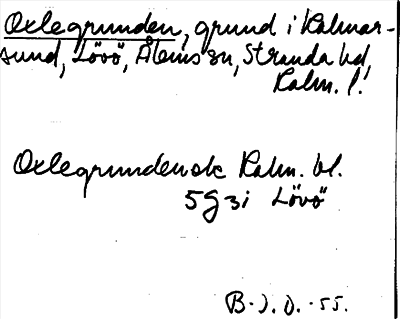 Oxlegrunden, grund i Kalmar-
sund, Lövö, Ålems sn, Stranda hd,
Kalm. l.
Oxlegrunden ek Kalm. bl.
5 G 3 i Lövö
B. J. O. -55.